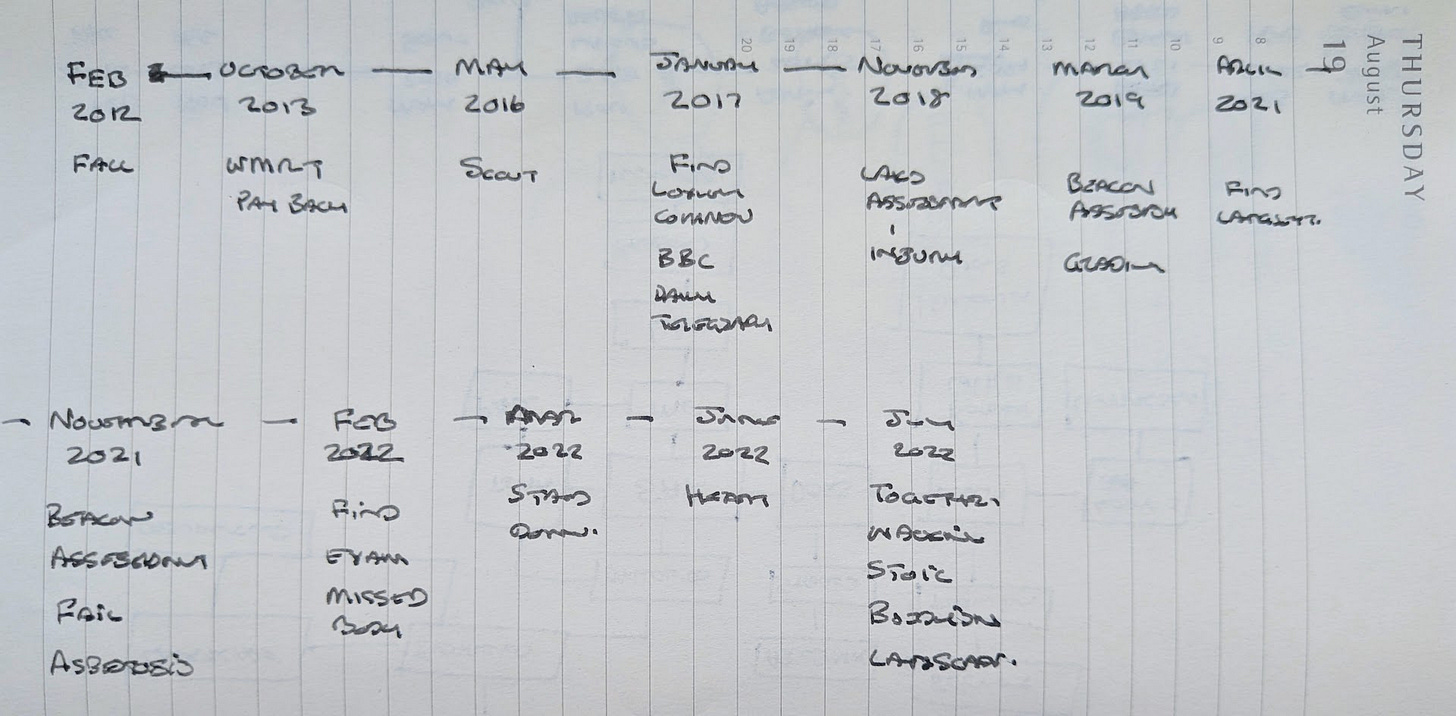 THURSDAY
19 August
20 19 18 17 16 15 14 13 12 11 10 9 8
FEB — OCTOBER — MAY — JANUARY — NOVEMBER MARCH APRIL —
2012 2013 2016 2017 2018 2019 2021
FALL WMRT SCOUT FIND LAKES BEACON FIND
PAY BACK COMMON ASSESSMENT ASSESSOR
BBC INJURY
DAILY
TELEGRAPH
— NOVEMBER — FEB — — — JULY
2021 2022 2022 2022 2022
BEACON FIND STAND HEART TOGETHER.
ASSESSMENT EXAM DOWN. WALKING
FAIL MISSED STOIC
ASBESTOSIS BODY
LANDSCAPE.